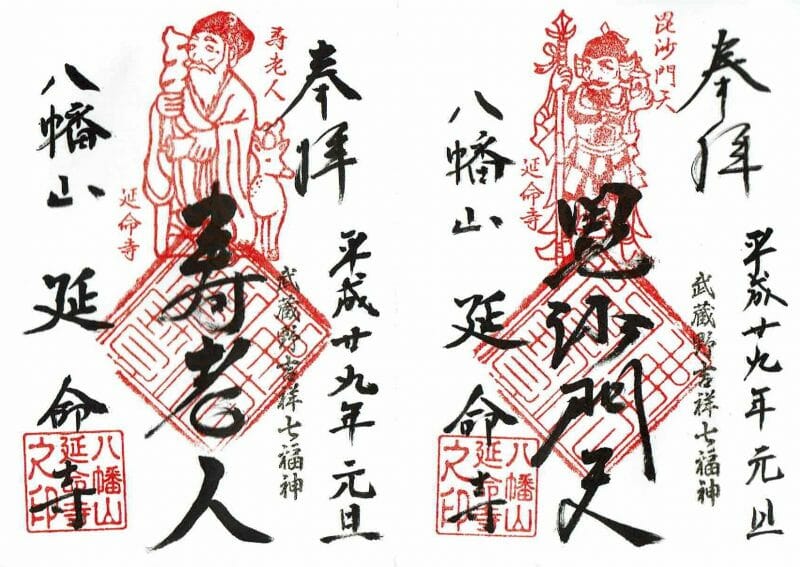 奉拝
毘沙門天
延命寺
八幡山
延命寺
毘沙門天
武蔵野吉祥七福神
平成廿九年元旦
八幡山
延命寺
之印
奉拝
寿老人
延命寺
八幡山
延命寺
寿老人
武蔵野吉祥七福神
平成廿九年元旦
八幡山
延命寺
之印